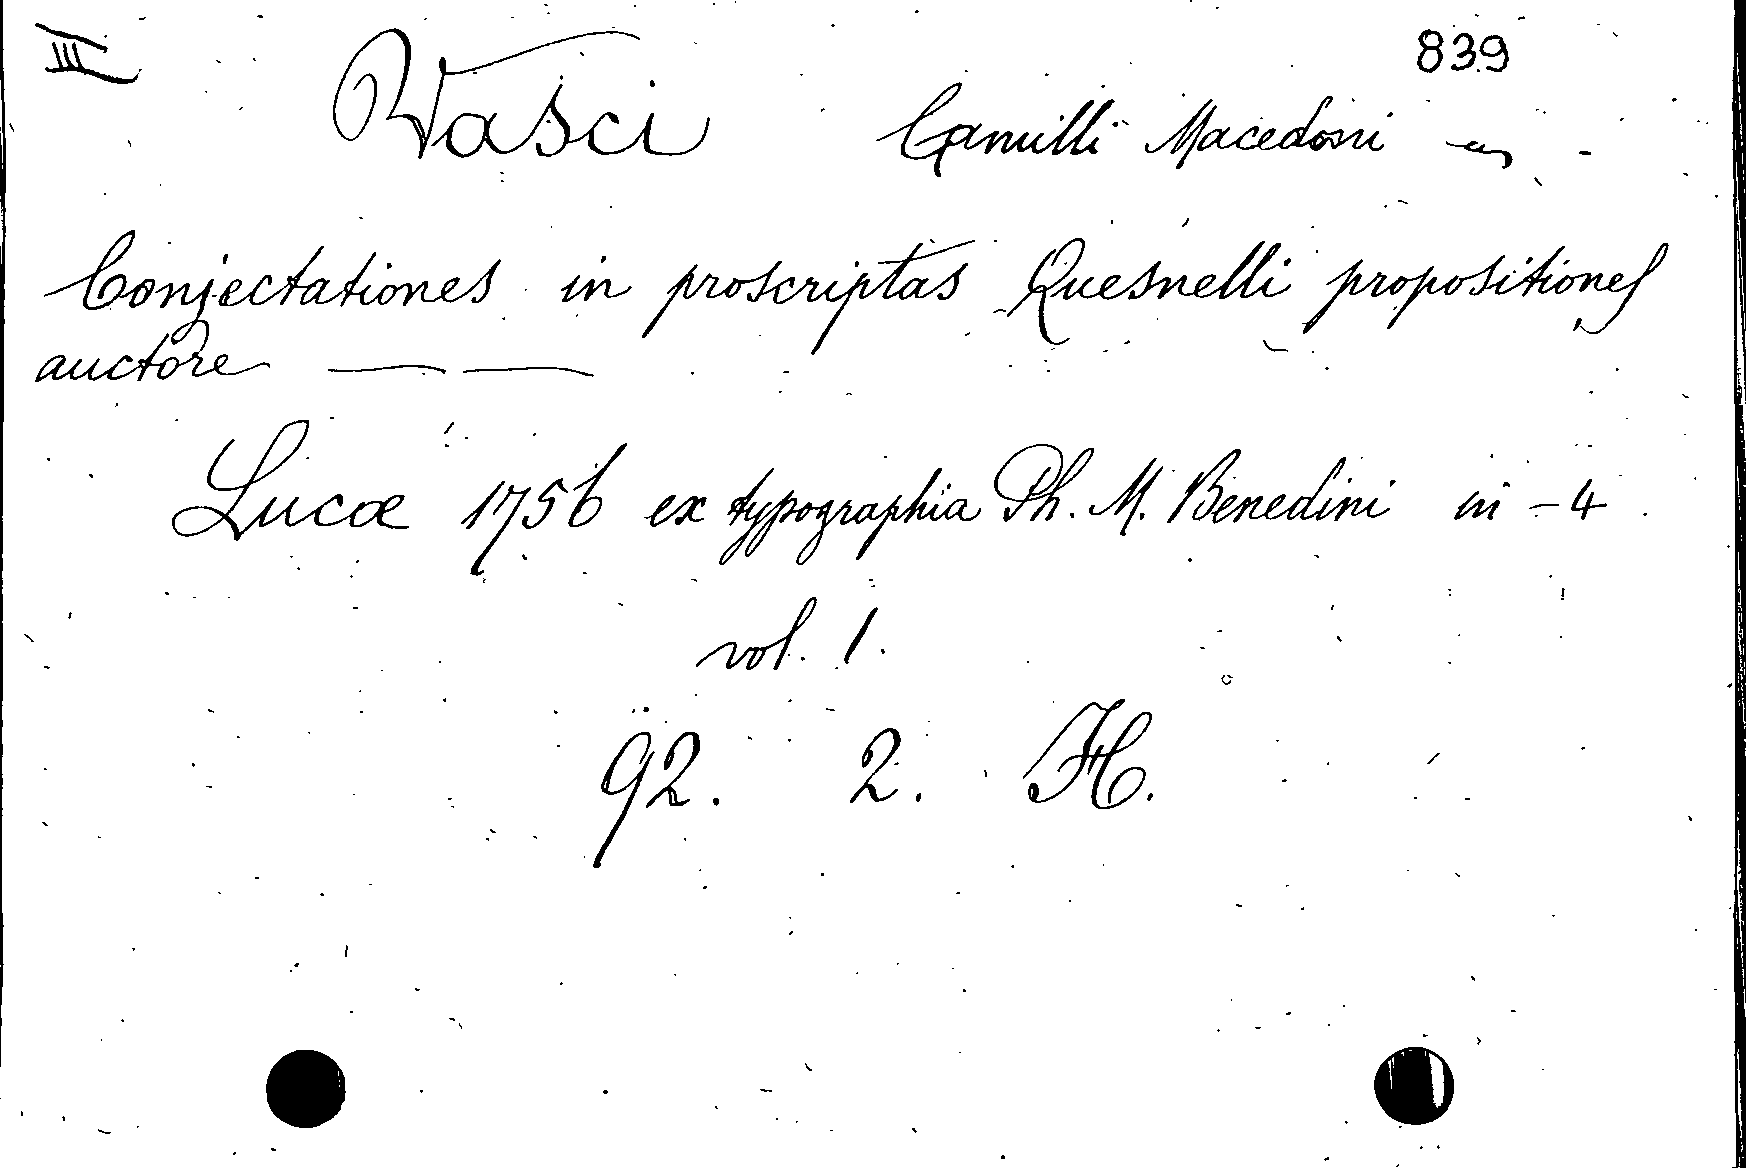 III 839
Vasci Camilli Macedoni
Conjectationes in proscriptas Quesnelli propositiones
auctore — —
Lucæ 1756 ex typographia Ph. M. Benedini in -4
vol. 1.
92. 2. H.